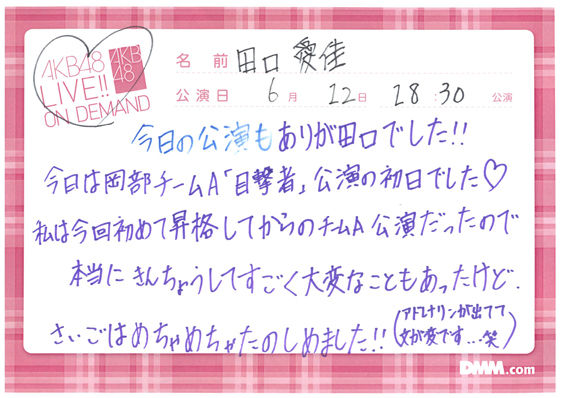 AKB48
LIVE!!
ON DEMAND
AKB
48
名前 田口 愛佳
公演日 6月 22日 18:30 公演
今日の公演もありが田口でした!!
今日は岡部チームA「目撃者」公演の初日でした♡
私は今回初めて昇格してからのチームA公演だったので
本当にきんちょうしてすごく大変なこともあったけど、
さいごはめちゃめちゃたのしめました!!
(アドレナリンが出てて
文が変です...笑)
DMM.com